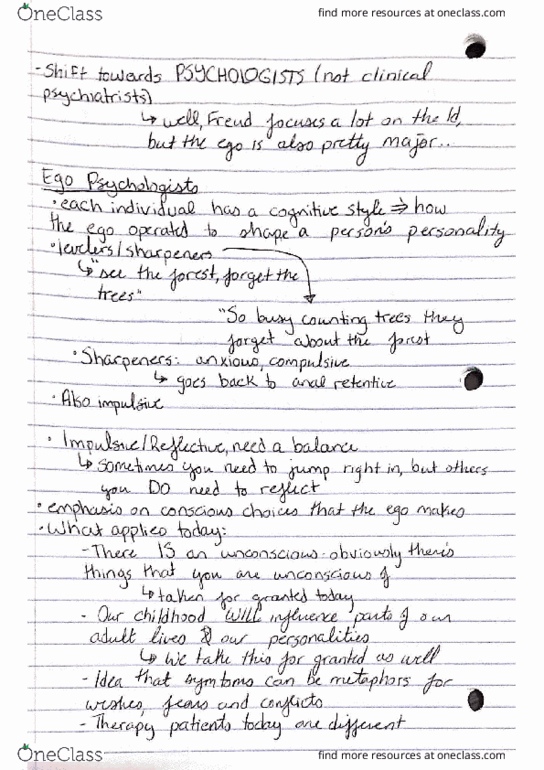 OneClass
find more resources at oneclass.com
- Shift towards PSYCHOLOGISTS (not clinical
psychiatrists)
↳ well, Freud focuses a lot on the Id,
but the ego is also pretty major..
Ego Psychologists
• each individual has a cognitive style ⇒ how
the ego operated to shape a person's personality
• levelers/sharpeners
↳ "see the forest, forget the
trees"
"So busy counting trees they
forget about the forest
• Sharpeners: anxious, compulsive
↳ goes back to anal retentive
• Also impulsive
• Impulsive/Reflective, need a balance
↳ sometimes you need to jump right in, but others
you DO need to reflect
• emphasis on conscious choices that the ego makes
• What applies today:
- There IS an unconscious - obviously there's
things that you are unconscious of
↳ taken for granted today
- Our childhood WILL influence parts of our
adult lives & our personalities
↳ We take this for granted as well
- Idea that symptoms can be metaphors for
wishes, fears and conflicts
- Therapy patients today are different
OneClass
find more resources at oneclass.com